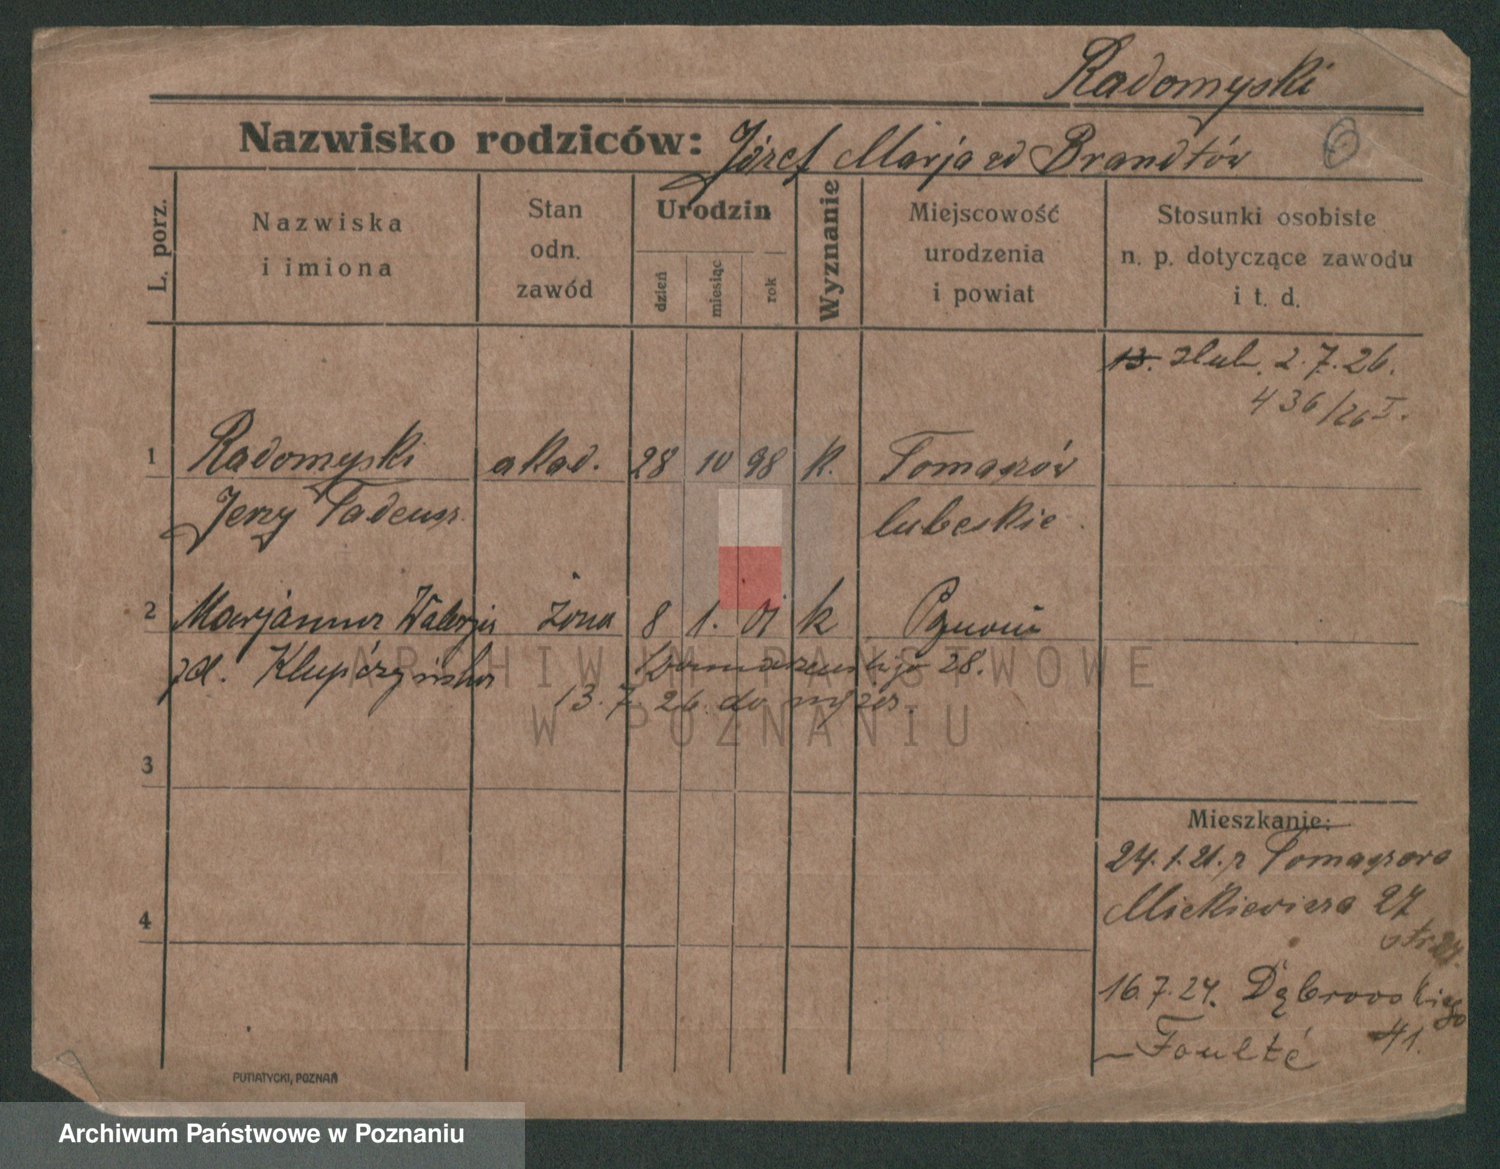 Radomyski
Nazwisko rodziców: Józef Marja zd Brandtów
L. porz.
Nazwiska
i imiona
Stan
odn.
zawód
Urodzin
dzień
miesiąc
rok
Wyznanie
Miejscowość
urodzenia
i powiat
Stosunki osobiste
n. p. dotyczące zawodu
i t. d.
13. ślub. 2.7.26.
436/26 I.
1 Radomyski akad. 28 10 98 k. Tomaszów
Jerzy Tadeusz lubelskie
2 Marjanna Walerja żona 8 1. 01 k Poznań
28.
13.7.26. do wyżej.
3
Mieszkanie:
24.1.21. z Tomaszowa
Mickiewicza 27
4
16.7.24. Dąbrowskiego
41.
PUTIATYCKI, POZNAŃ
ARCHIWUM PAŃSTWOWE
W POZNANIU
Archiwum Państwowe w Poznaniu